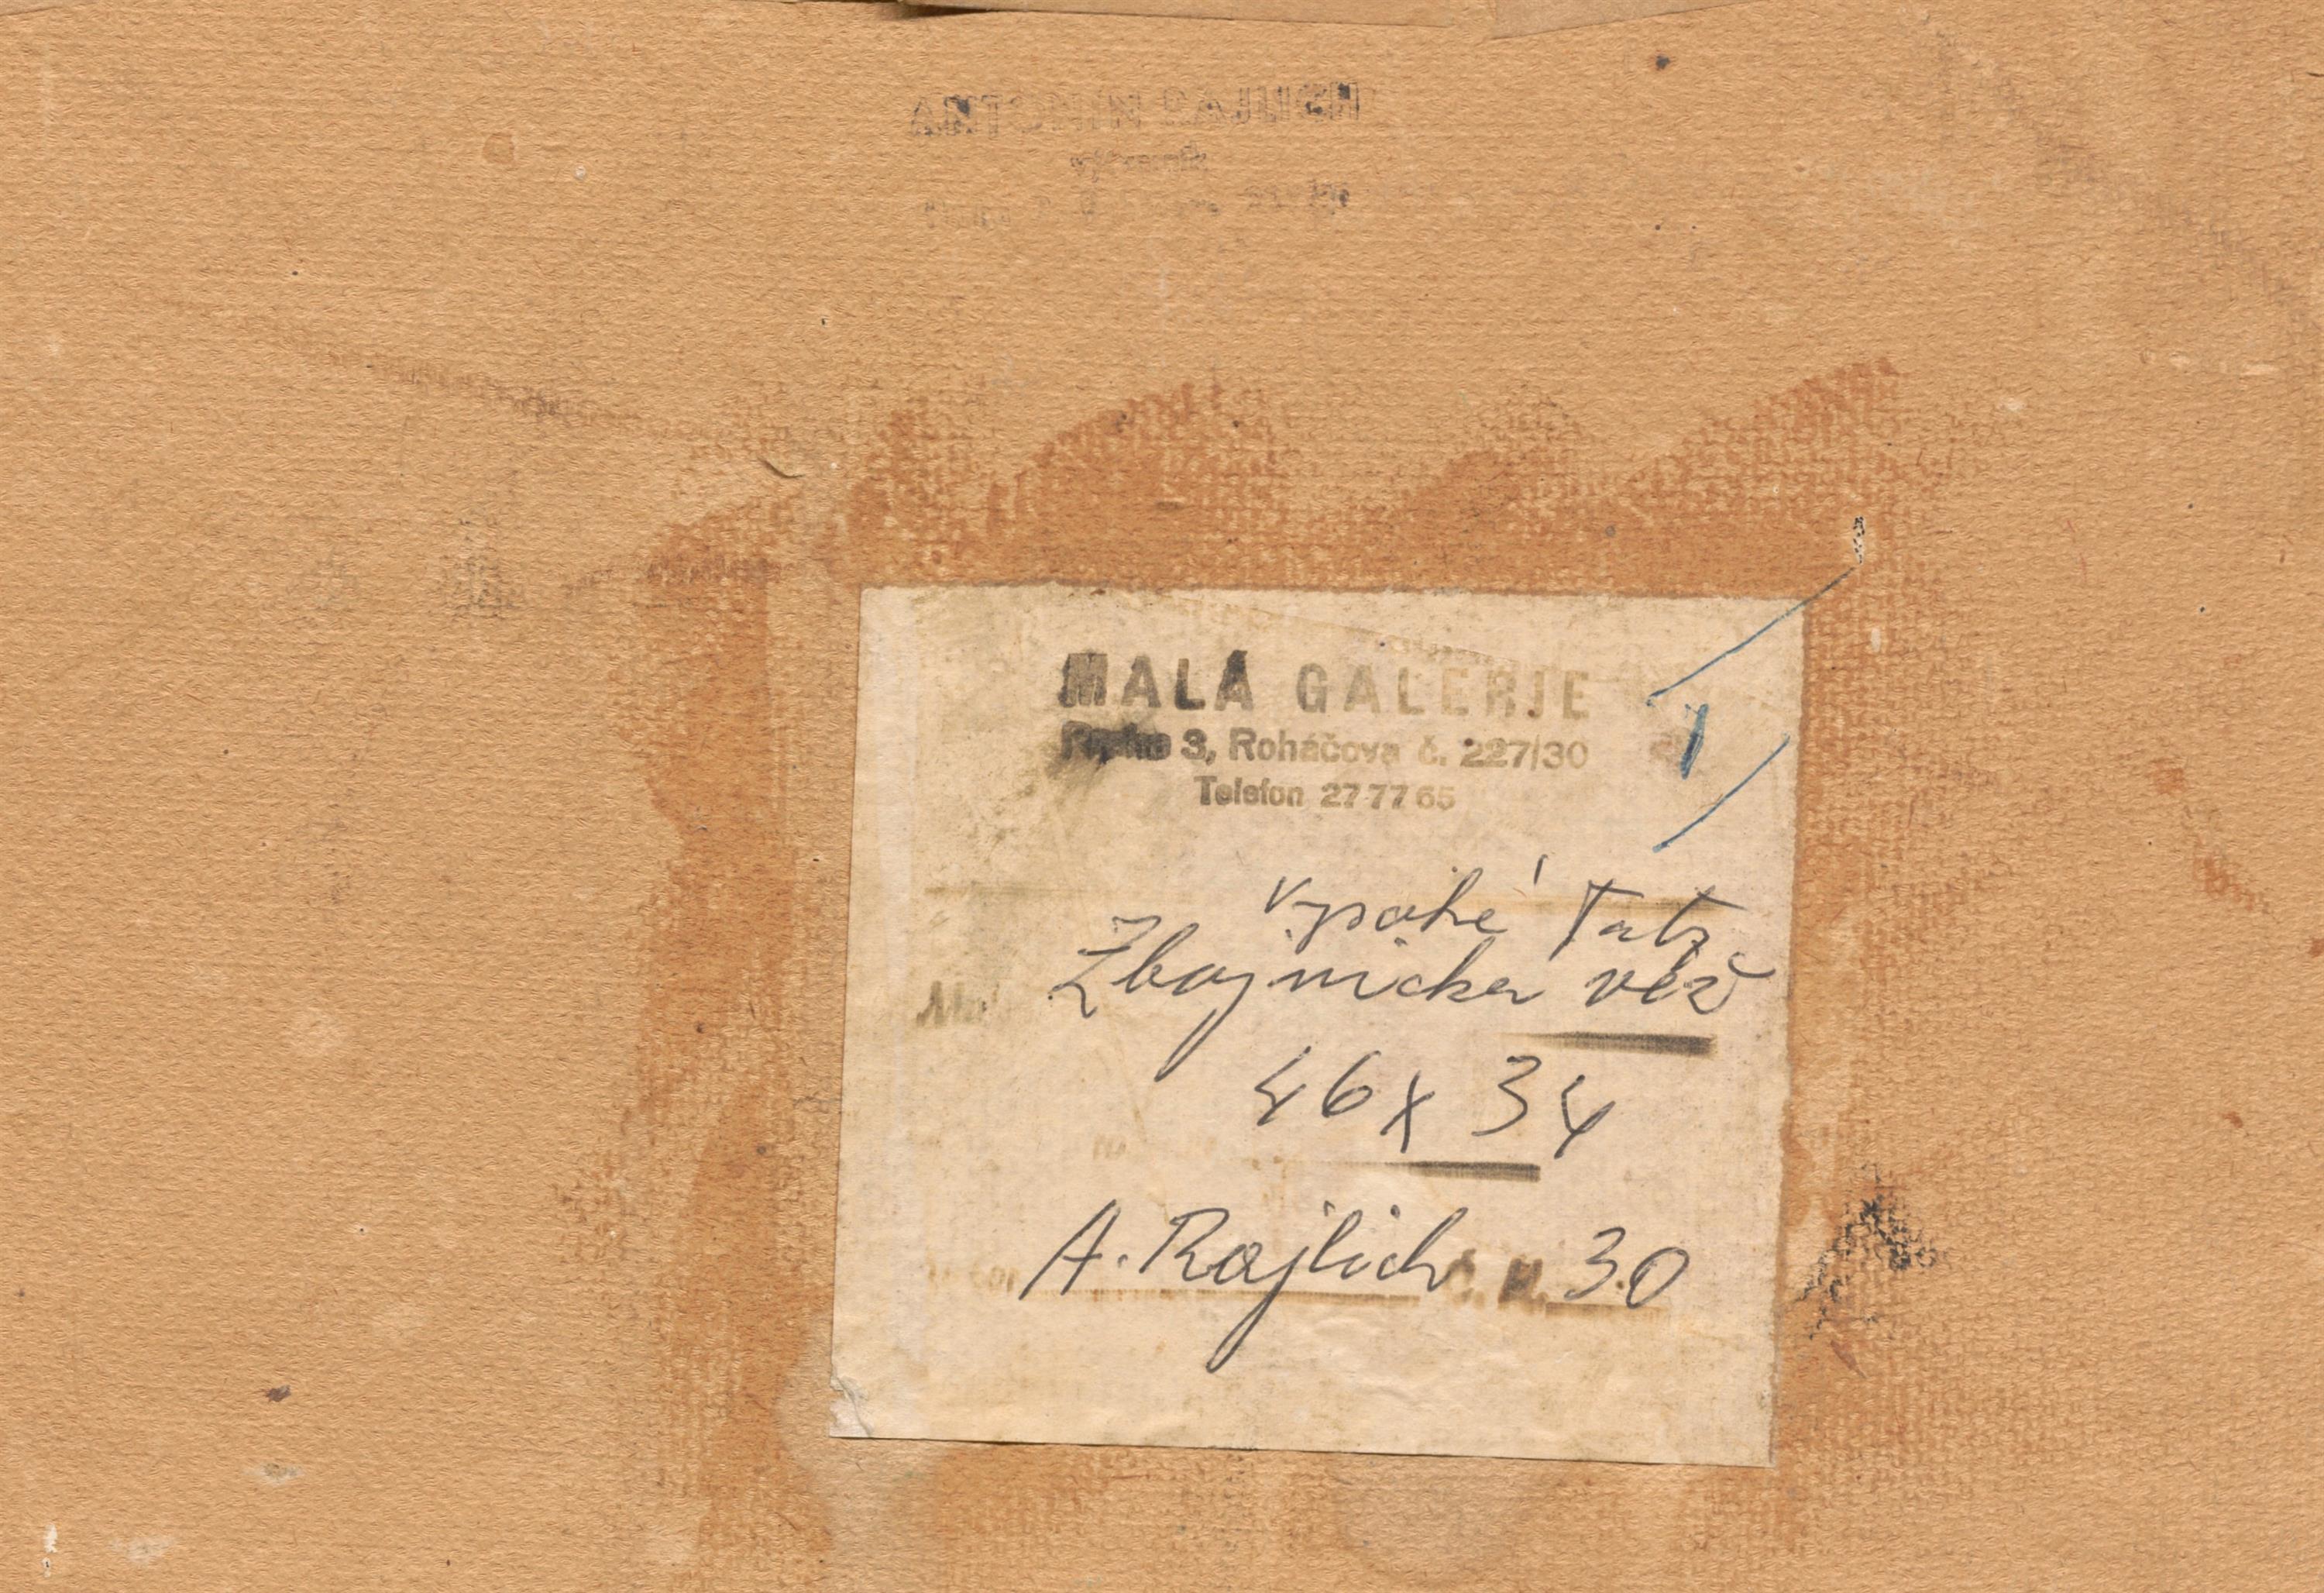 ANTONÍN RAJLICH
MALÁ GALERIE
Praha 3, Roháčova č. 227/30
Telefon 27 77 65
Vysoké Tatry
Zbojnická věž
46 x 34
A. Rajlich 30